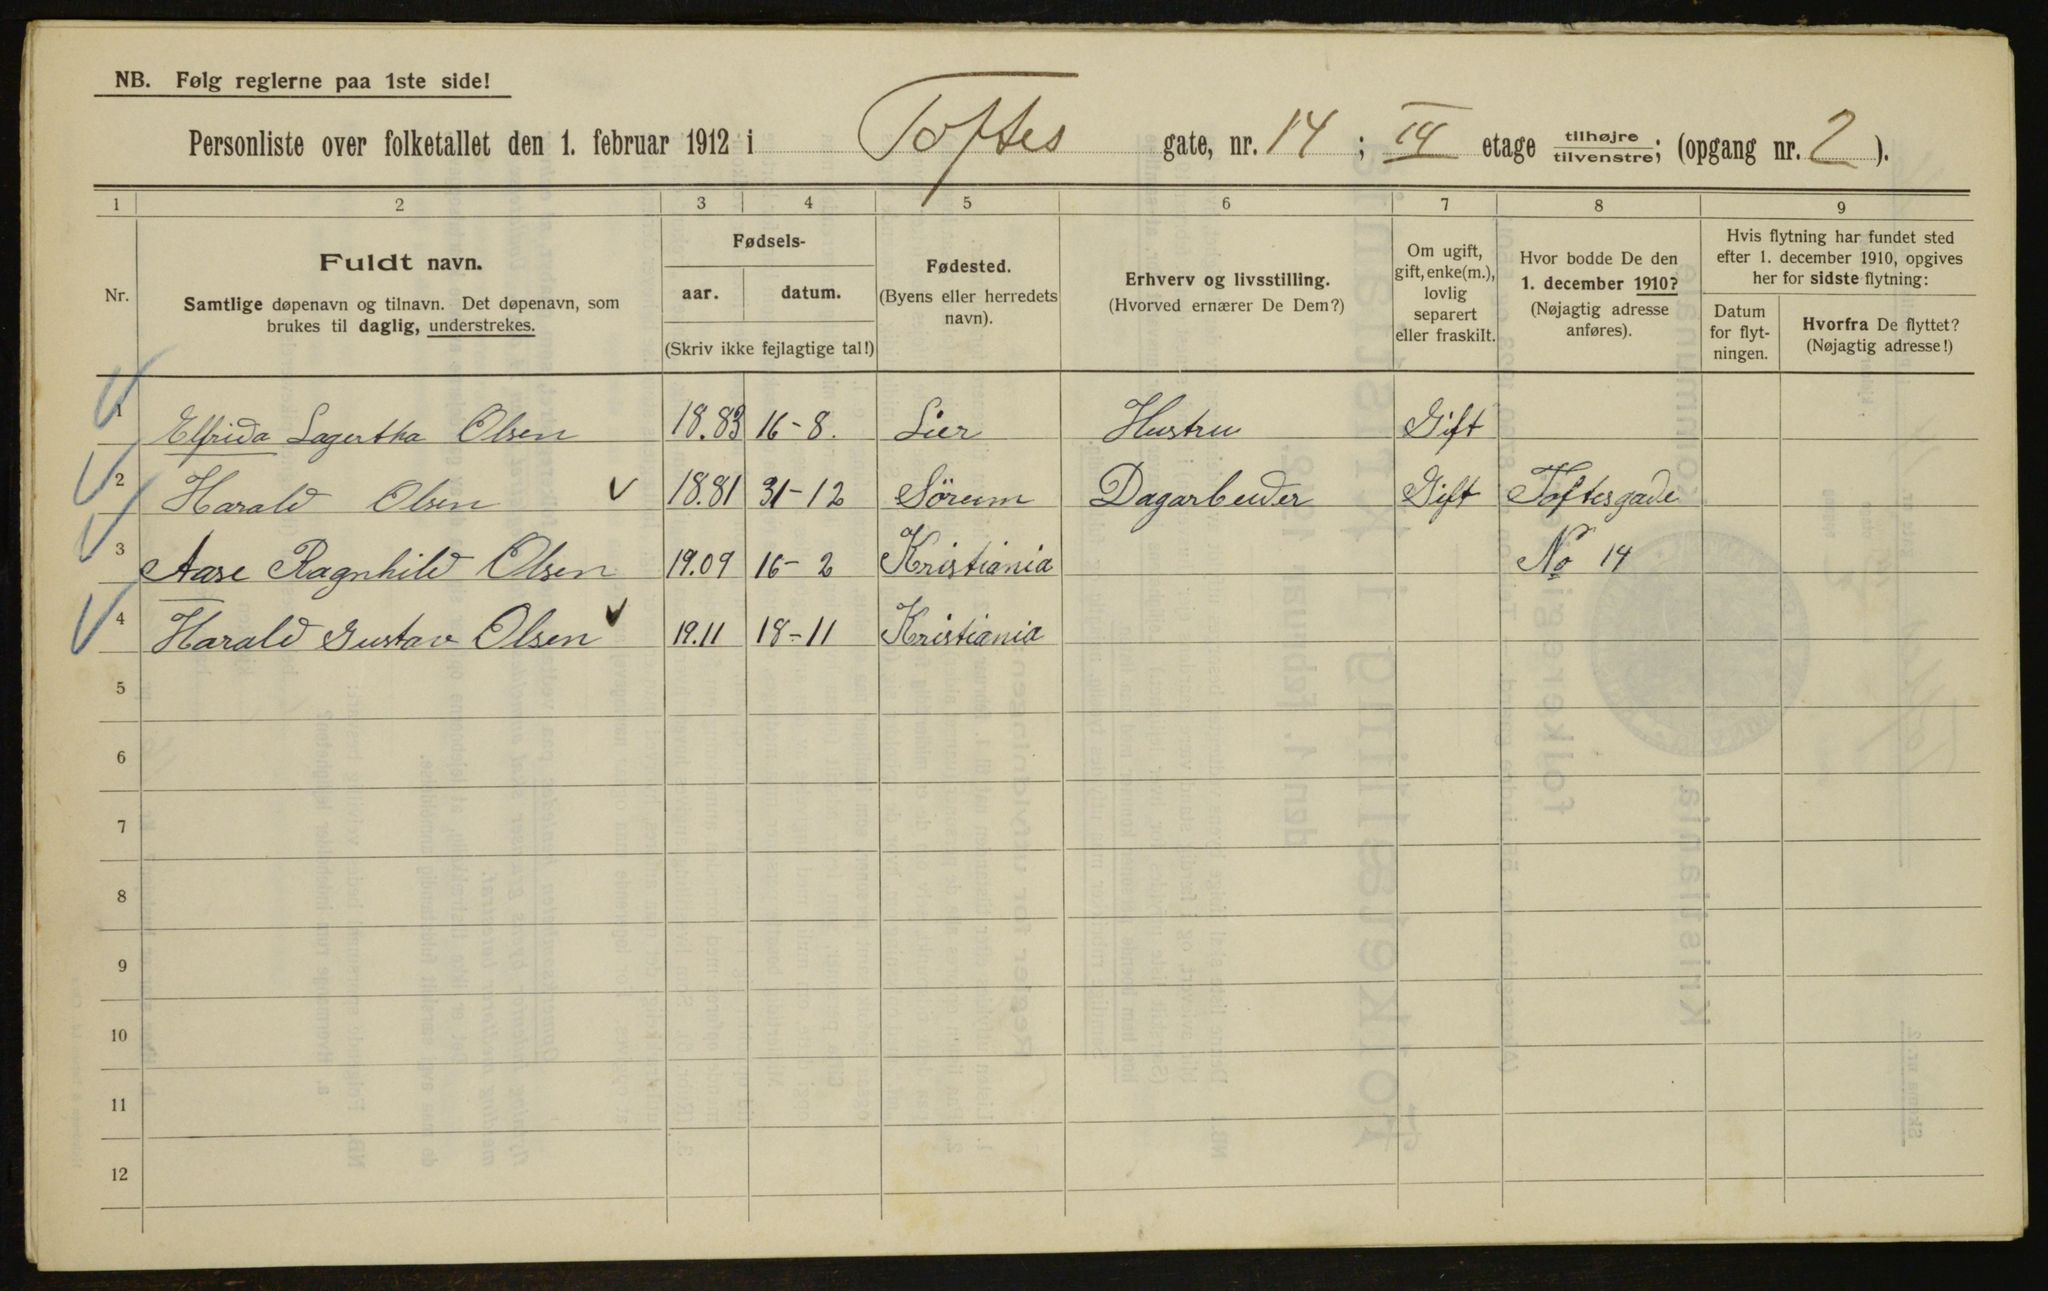 NB. Følg reglerne paa 1ste side!
Personliste over folketallet den 1. februar 1912 i Toftes gate, nr. 14; IV etage tilhøjre/tilvenstre; (opgang nr. 2).
1 2 3 4 5 6 7 8 9
Nr.
Fuldt navn.
Samtlige døpenavn og tilnavn. Det døpenavn, som
brukes til daglig, understrekes.
Fødsels-
aar. datum.
(Skriv ikke fejlagtige tal!)
Fødested.
(Byens eller herredets
navn).
Erhverv og livsstilling.
(Hvorved ernærer De Dem?)
Om ugift,
gift, enke(m.),
lovlig
separert
eller fraskilt.
Hvor bodde De den
1. december 1910?
(Nøjagtig adresse
anføres).
Hvis flytning har fundet sted
efter 1. december 1910, opgives
her for sidste flytning:
Datum
for flyt-
ningen.
Hvorfra De flyttet?
(Nøjagtig adresse!)
1 Elfrida Lagertha Olsen 18.83 16-8. Lier Hustru Gift
2 Harald Olsen 18.81 31-12 Sörum Dagarbeider Gift Toftesgade
3 Aase Ragnhild Olsen 19.09 16-2 Kristiania No 14
4 Harald Gustav Olsen 19.11 18-11 Kristiania
5
6
7
8
9
10
11
12